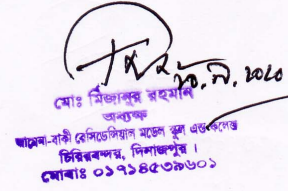 মোঃ মিজানুর রহমান
অধ্যক্ষ
আমেনা-বাকী রেসিডেন্সিয়াল মডেল স্কুল এন্ড কলেজ
চিরিরবন্দর, দিনাজপুর ।
মোবাঃ ০১৭১৪৫৩৯৬০১